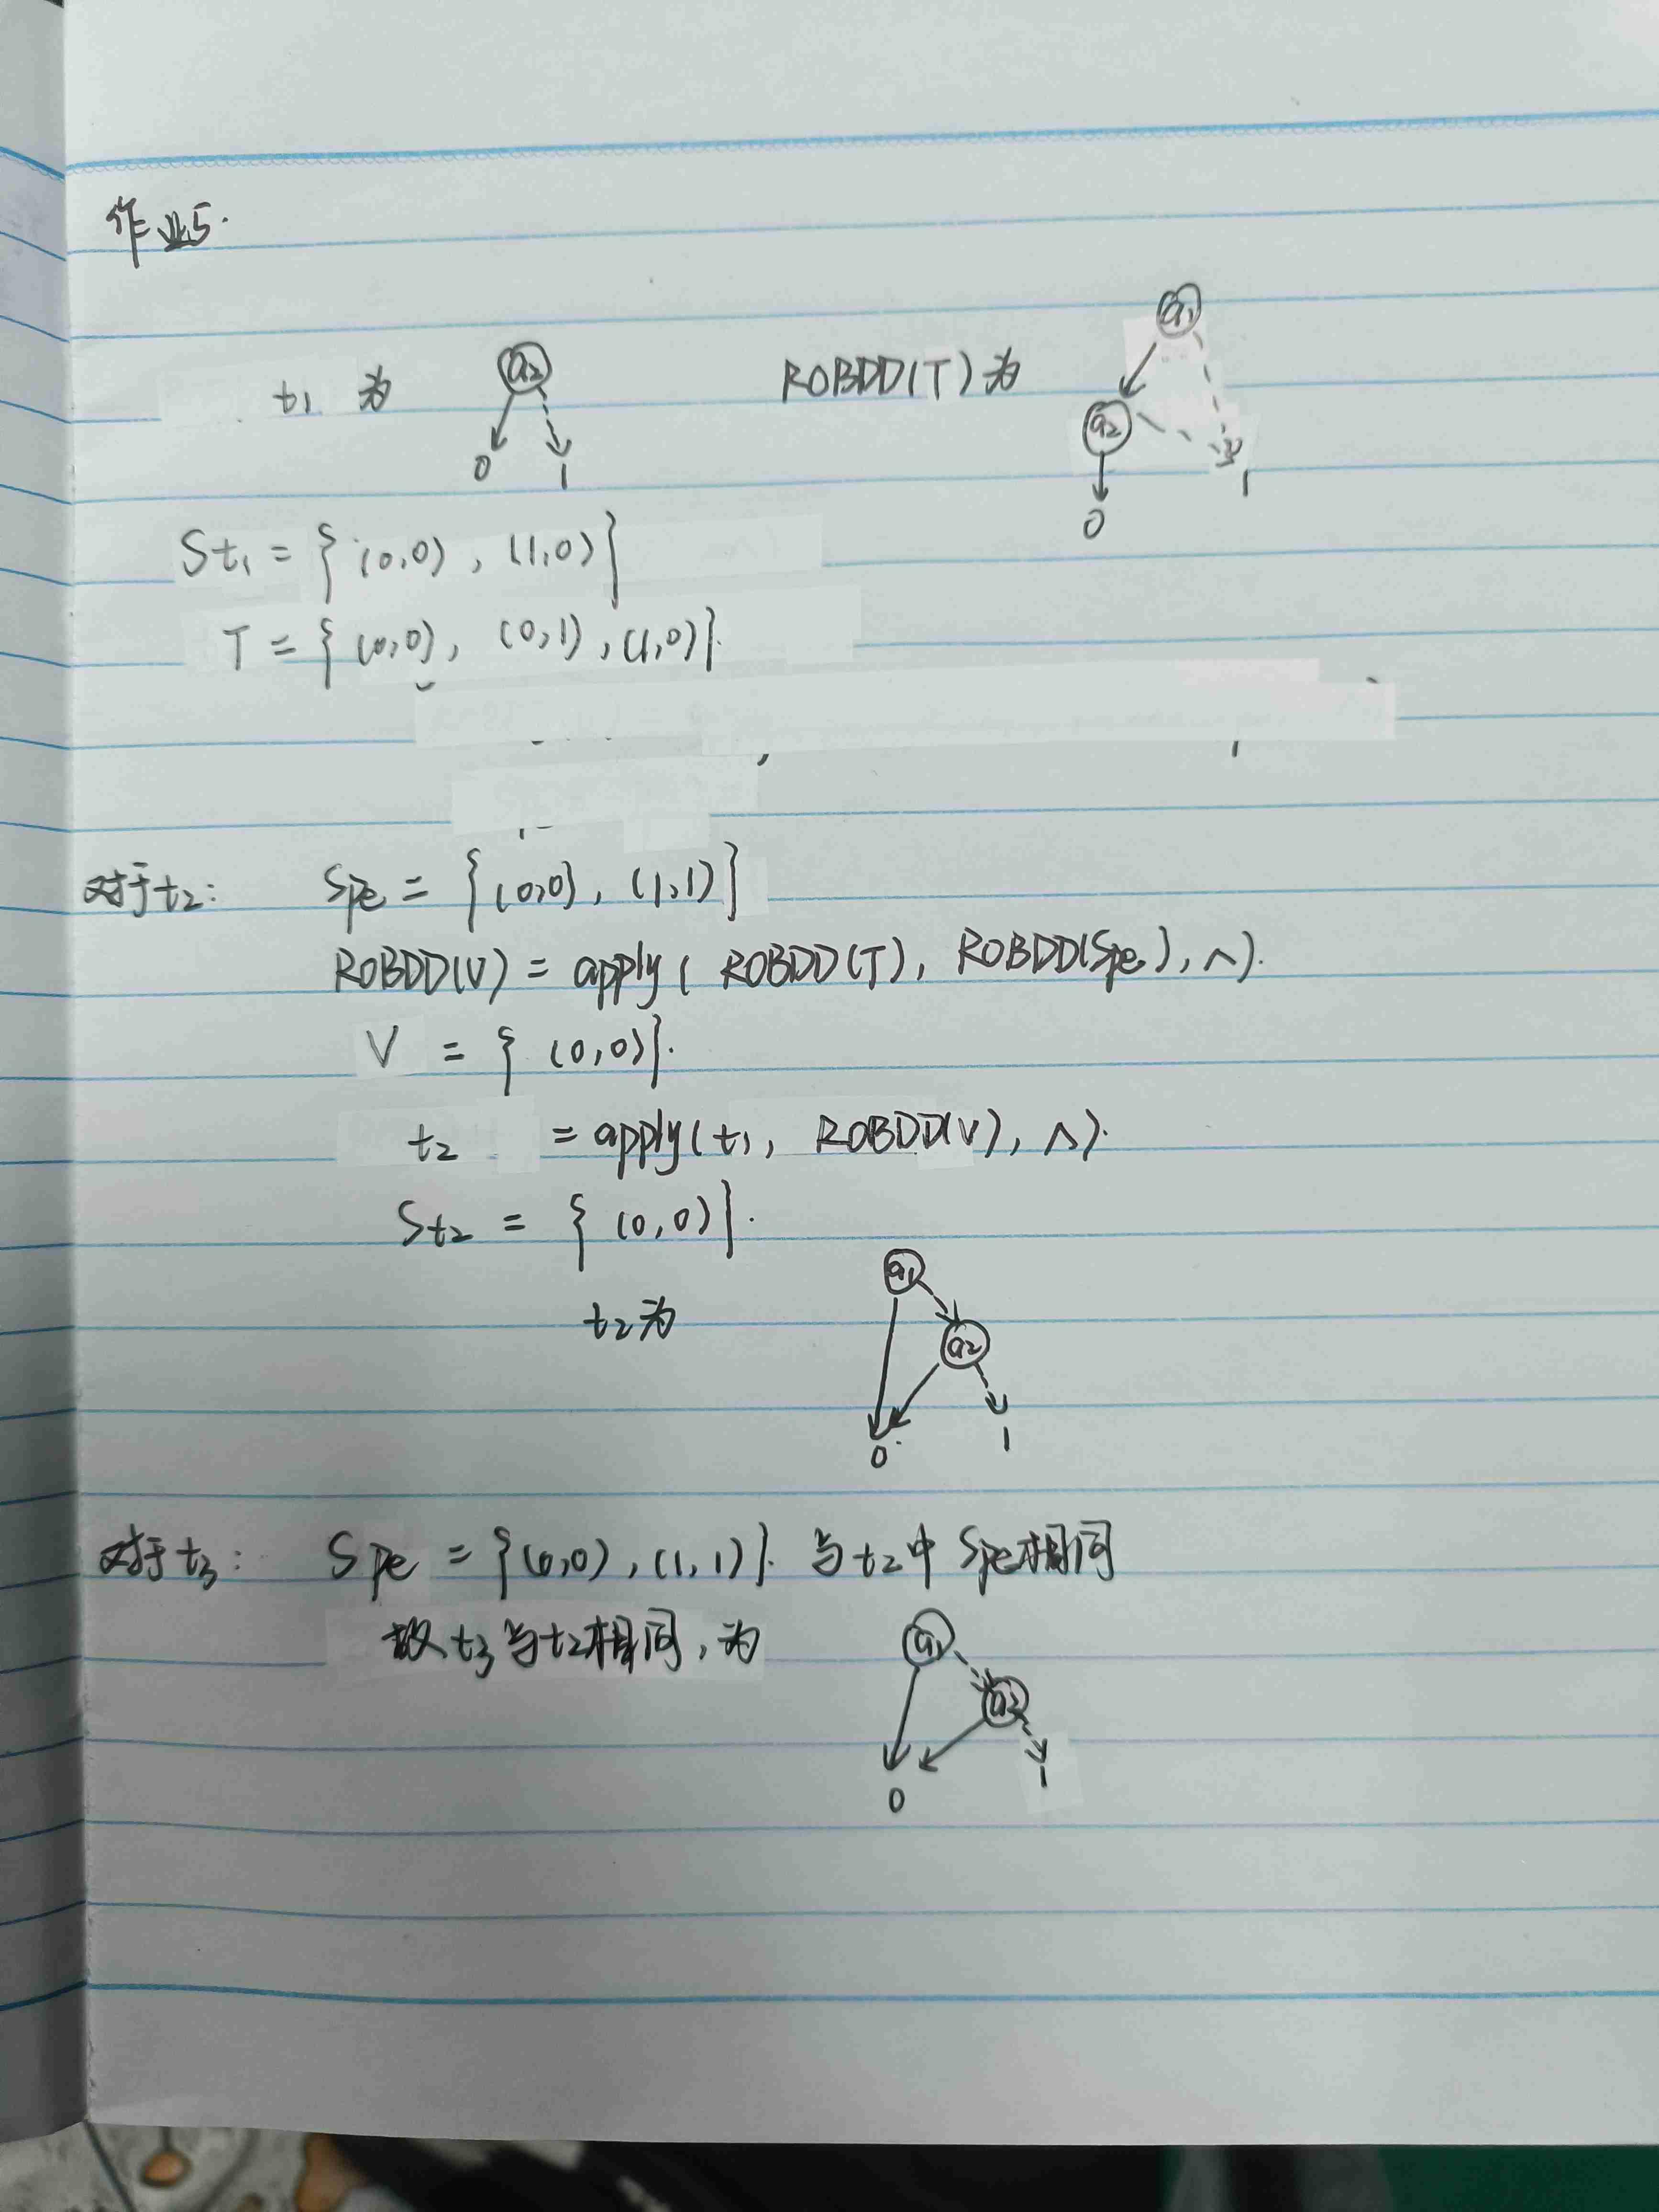 作业5.
t₁ 为 a₂ 0 1 ROBDD(T)为 a₁ a₂ 0 1
St₁ = { (0,0) , (1,0) }
T = { (0,0), (0,1) , (1,0) }.
对于t₂: Spe = { (0,0), (1,1) }
ROBDD(V) = apply( ROBDD(T), ROBDD(Spe), ∧).
V = { (0,0) }.
t₂ = apply( t₁, ROBDD(V), ∧).
St₂ = { (0,0) }.
t₂为 a₁ a₂ 0 1
对于t₃: Spe = { (0,0) , (1,1) }. 与t₂中 Spe相同
故 t₃与t₂相同, 为 a₁ a₂ 0 1